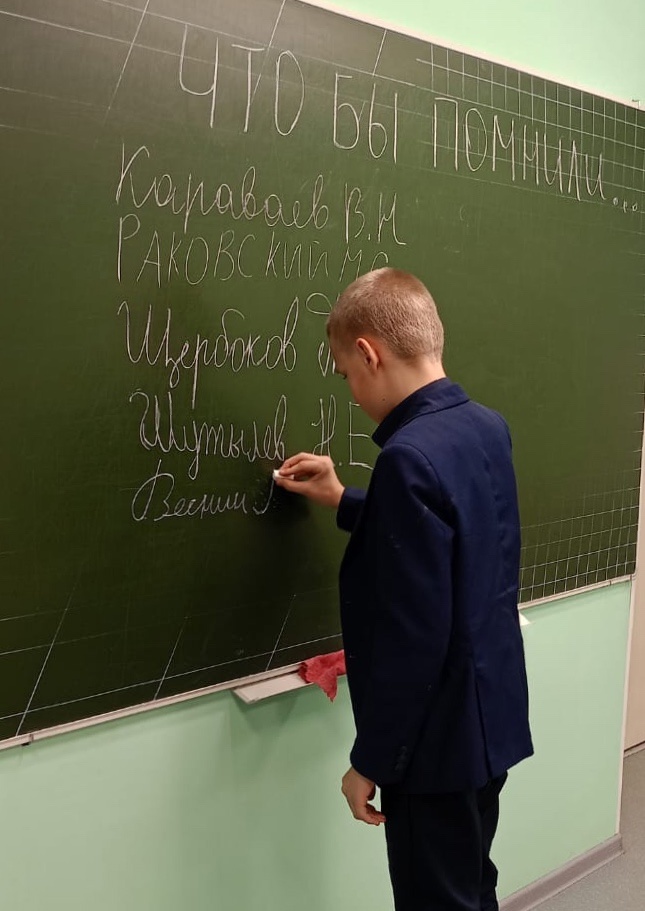 ЧТО БЫ ПОМНИЛИ...
Караваев В.Н
РАКОВСКИЙ М
Щербаков
Шутылев Н.Е
Веснин